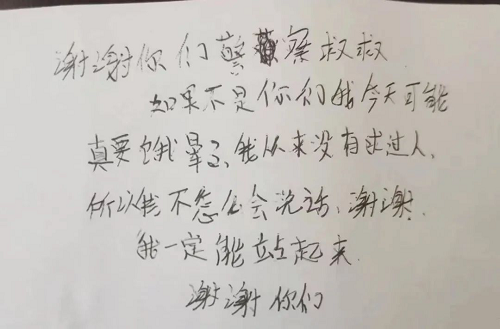 谢谢你们警察叔叔
如果不是你们我今天可能
真要饿晕了、我从来没有求过人、
所以我不怎么会说话、谢谢.
我一定能站起来.
谢谢你们